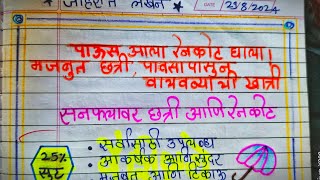 जाहिरात लेखन
DATE 23/8/2024
पाऊस आला रेनकोट घाला।
मजबुत छत्री, पावसापासून
वाचवण्याची खात्री
सनफ्लावर छत्री आणि रेनकोट
• सर्वांसाठी उपलब्ध
25%
सूट
• आकर्षक आणि सुंदर
• मजबूत आणि टिकाऊ